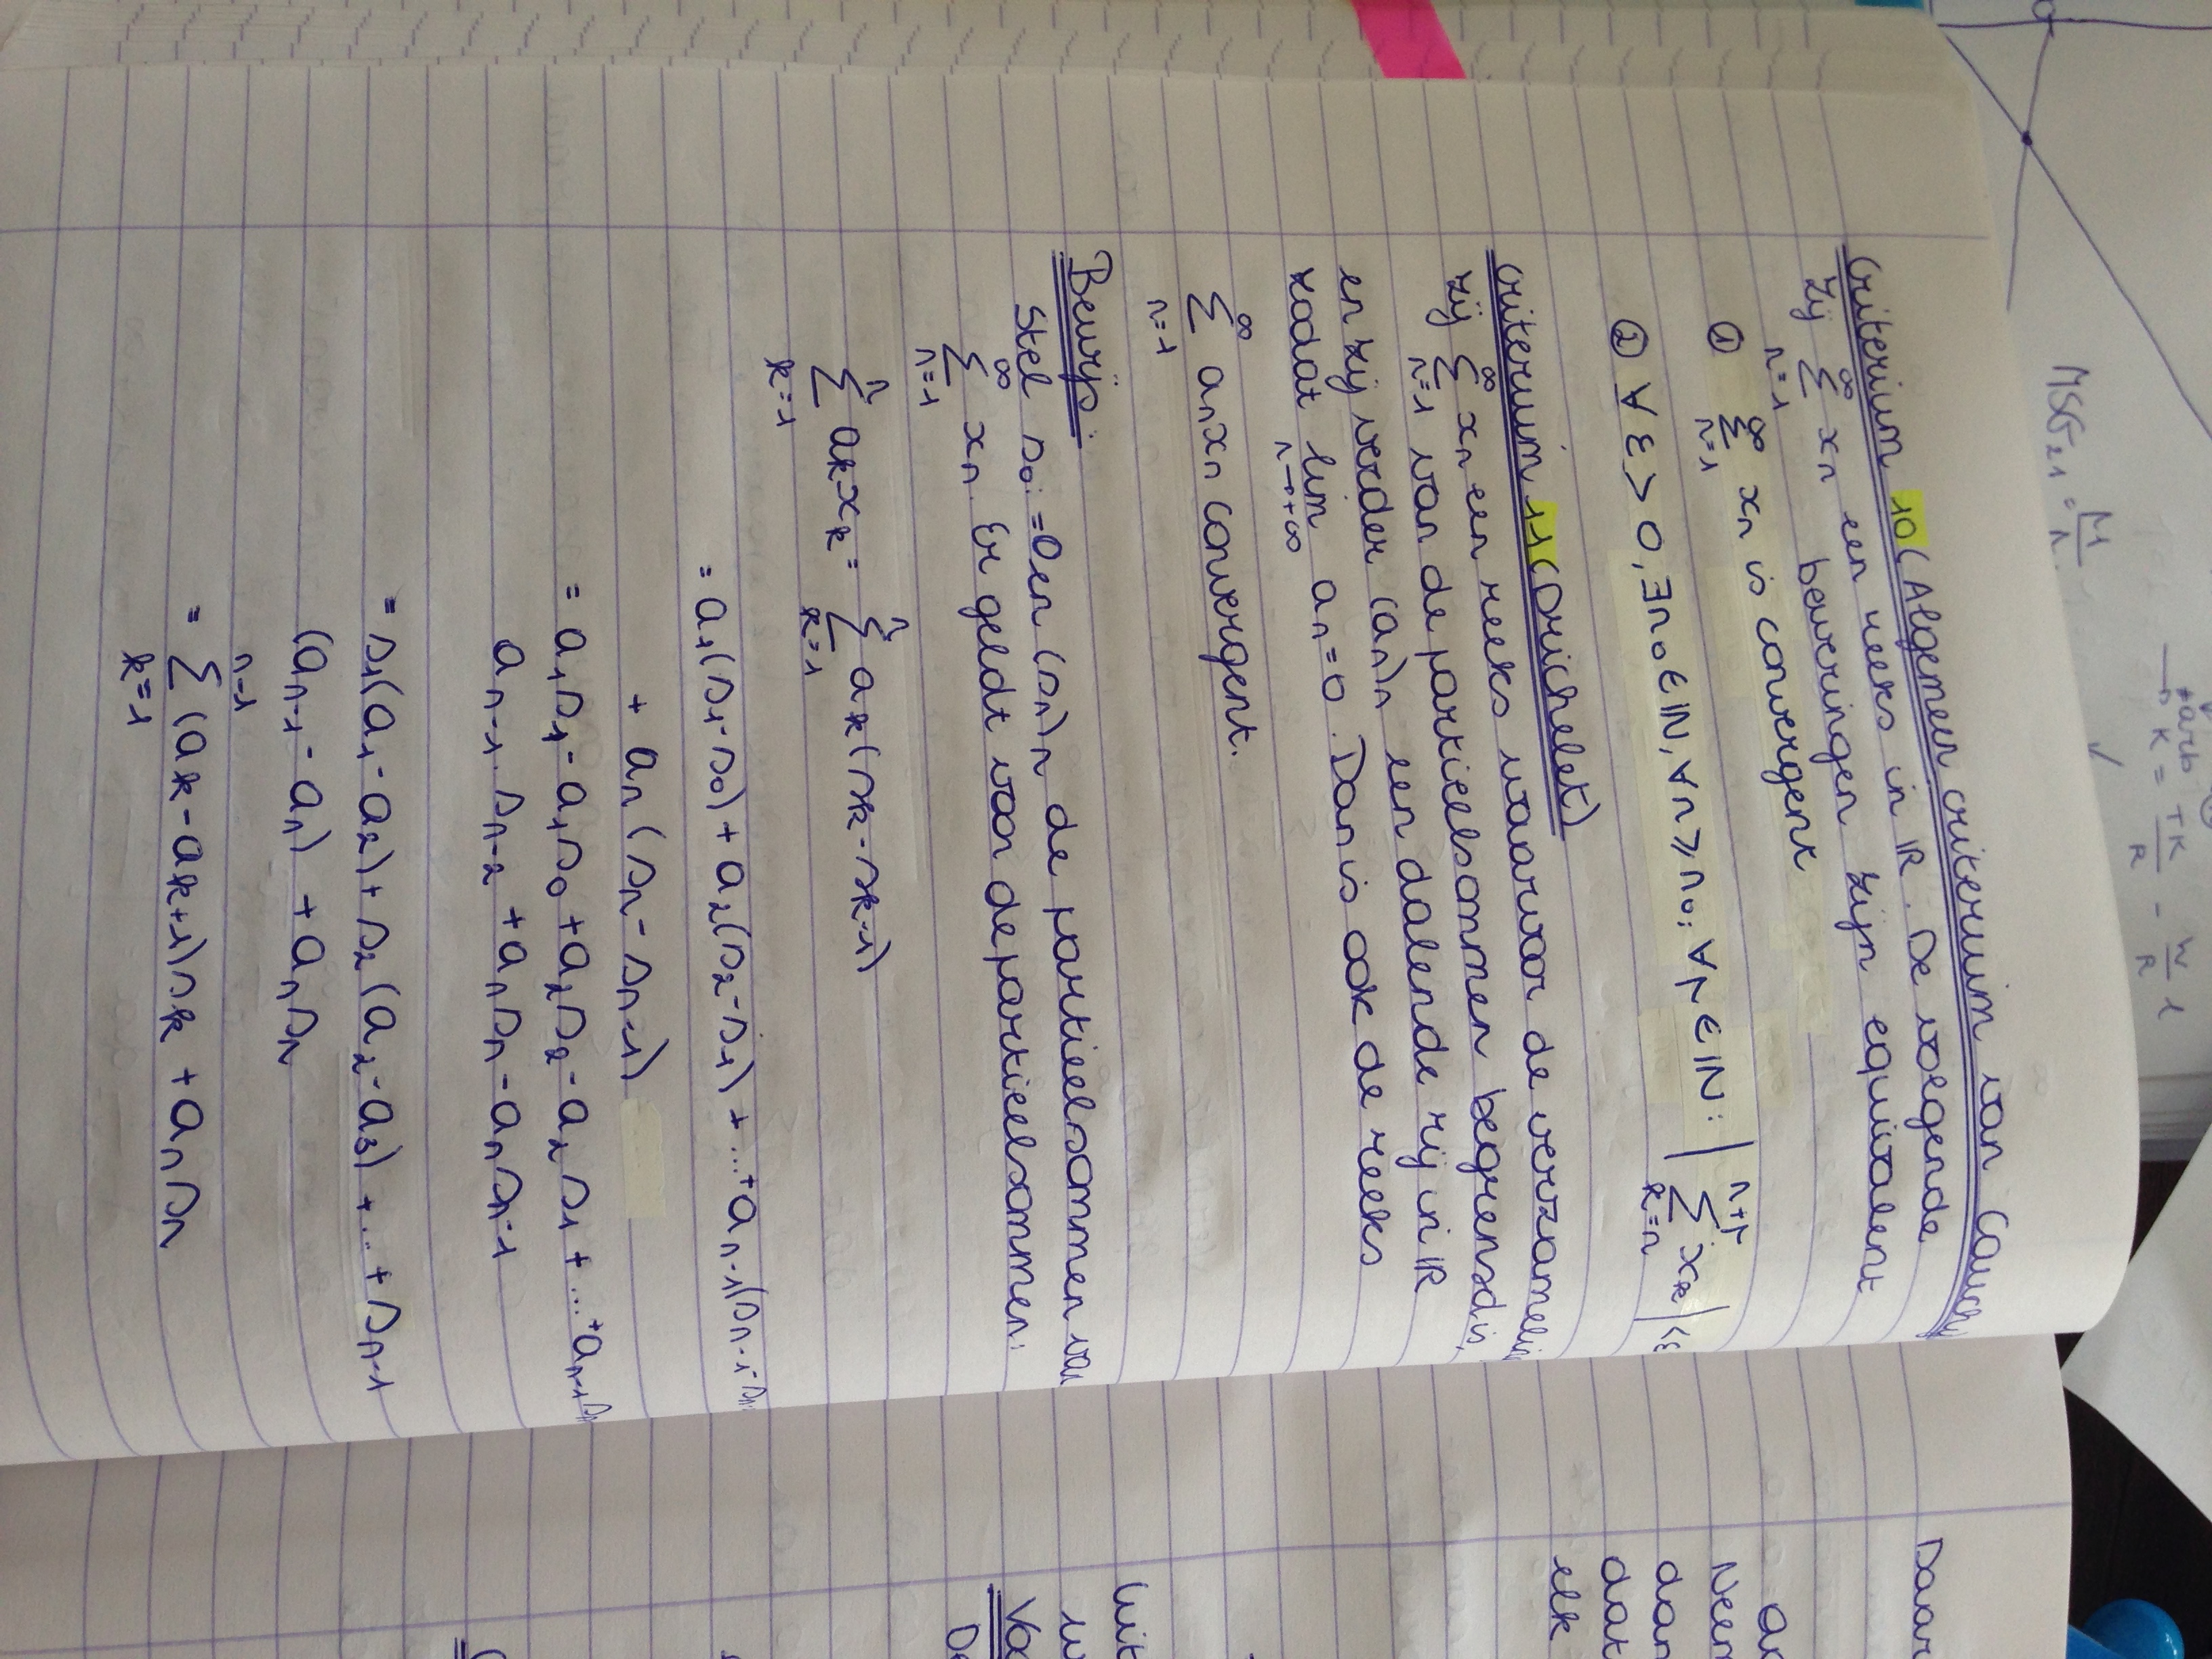 Criterium 10 (Algemeen criterium van Cauchy
Zij ∞∑n=1 xₙ een reeks in ℝ. De volgende
beweringen zijn equivalent
① ∞∑n=1 xₙ is convergent
② ∀ε>0, ∃n₀∈ℕ, ∀n⩾n₀, ∀p∈ℕ: | n+p∑k=n xₖ | <ε
Criterium 11 (Dirichelet)
Zij ∞∑n=1 xₙ een reeks waarvoor de verzameling
van de partieelsommen begrensd is,
en zij verder (aₙ)ₙ een dalende rij in ℝ
zodat lim n→+∞ aₙ=0. Dan is ook de reeks
∞∑n=1 aₙxₙ convergent.
Bewijs:
Stel s₀:=0 en (sₙ)ₙ de partieelsommen van
∞∑n=1 xₙ. Er geldt voor de partieelsommen:
n∑k=1 aₖxₖ = n∑k=1 aₖ(sₖ-sₖ₋₁)
= a₁(s₁-s₀) + a₂(s₂-s₁) + ... + aₙ₋₁(sₙ₋₁-sₙ
+ aₙ(sₙ-sₙ₋₁)
= a₁s₁-a₁s₀+a₂s₂-a₂s₁+...+aₙ₋₁sₙ
aₙ₋₁.sₙ₋₂+aₙsₙ-aₙsₙ₋₁
= s₁(a₁-a₂)+s₂(a₂-a₃)+...+sₙ₋₁
(aₙ₋₁-aₙ) + aₙsₙ
= n-1∑k=1 (aₖ-aₖ₊₁)sₖ + aₙsₙ
Daar
Neem
dan
dat
elk
Uit
Voo
De
MSG₂₁ = M
K = TK/R - W/R L